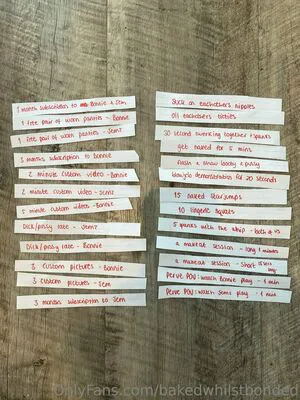 1 month subscription to Bonnie & Jem
1 free pair of worn panties - Bonnie
1 free pair of worn panties - Jemz
3 months subscription to Bonnie
2 minute custom video - Bonnie
2 minute custom video - Jemz
5 minute custom videos - Bonnie
Dick/pussy rate - Jemz
Dick/pussy rate - Bonnie
3 custom pictures - Bonnie
3 custom pictures - Jem
3 months subscription to Jem
Suck on eachothers nipples
Oil eachothers titties
30 second twerking together & spanks
get naked for 5 mins
flash & show booty & pussy
blowjob demonstration for 20 seconds
15 naked starjumps
10 lingerie squats
5 spanks with the whip - both of us
a makeout session - long 1 minute
a makeout session - short 15 secs
Perve POV: watch Bonnie play - 1 min
Perve POV: watch Jemz play - 1 min
OnlyFans.com/bakedwhilstbonded